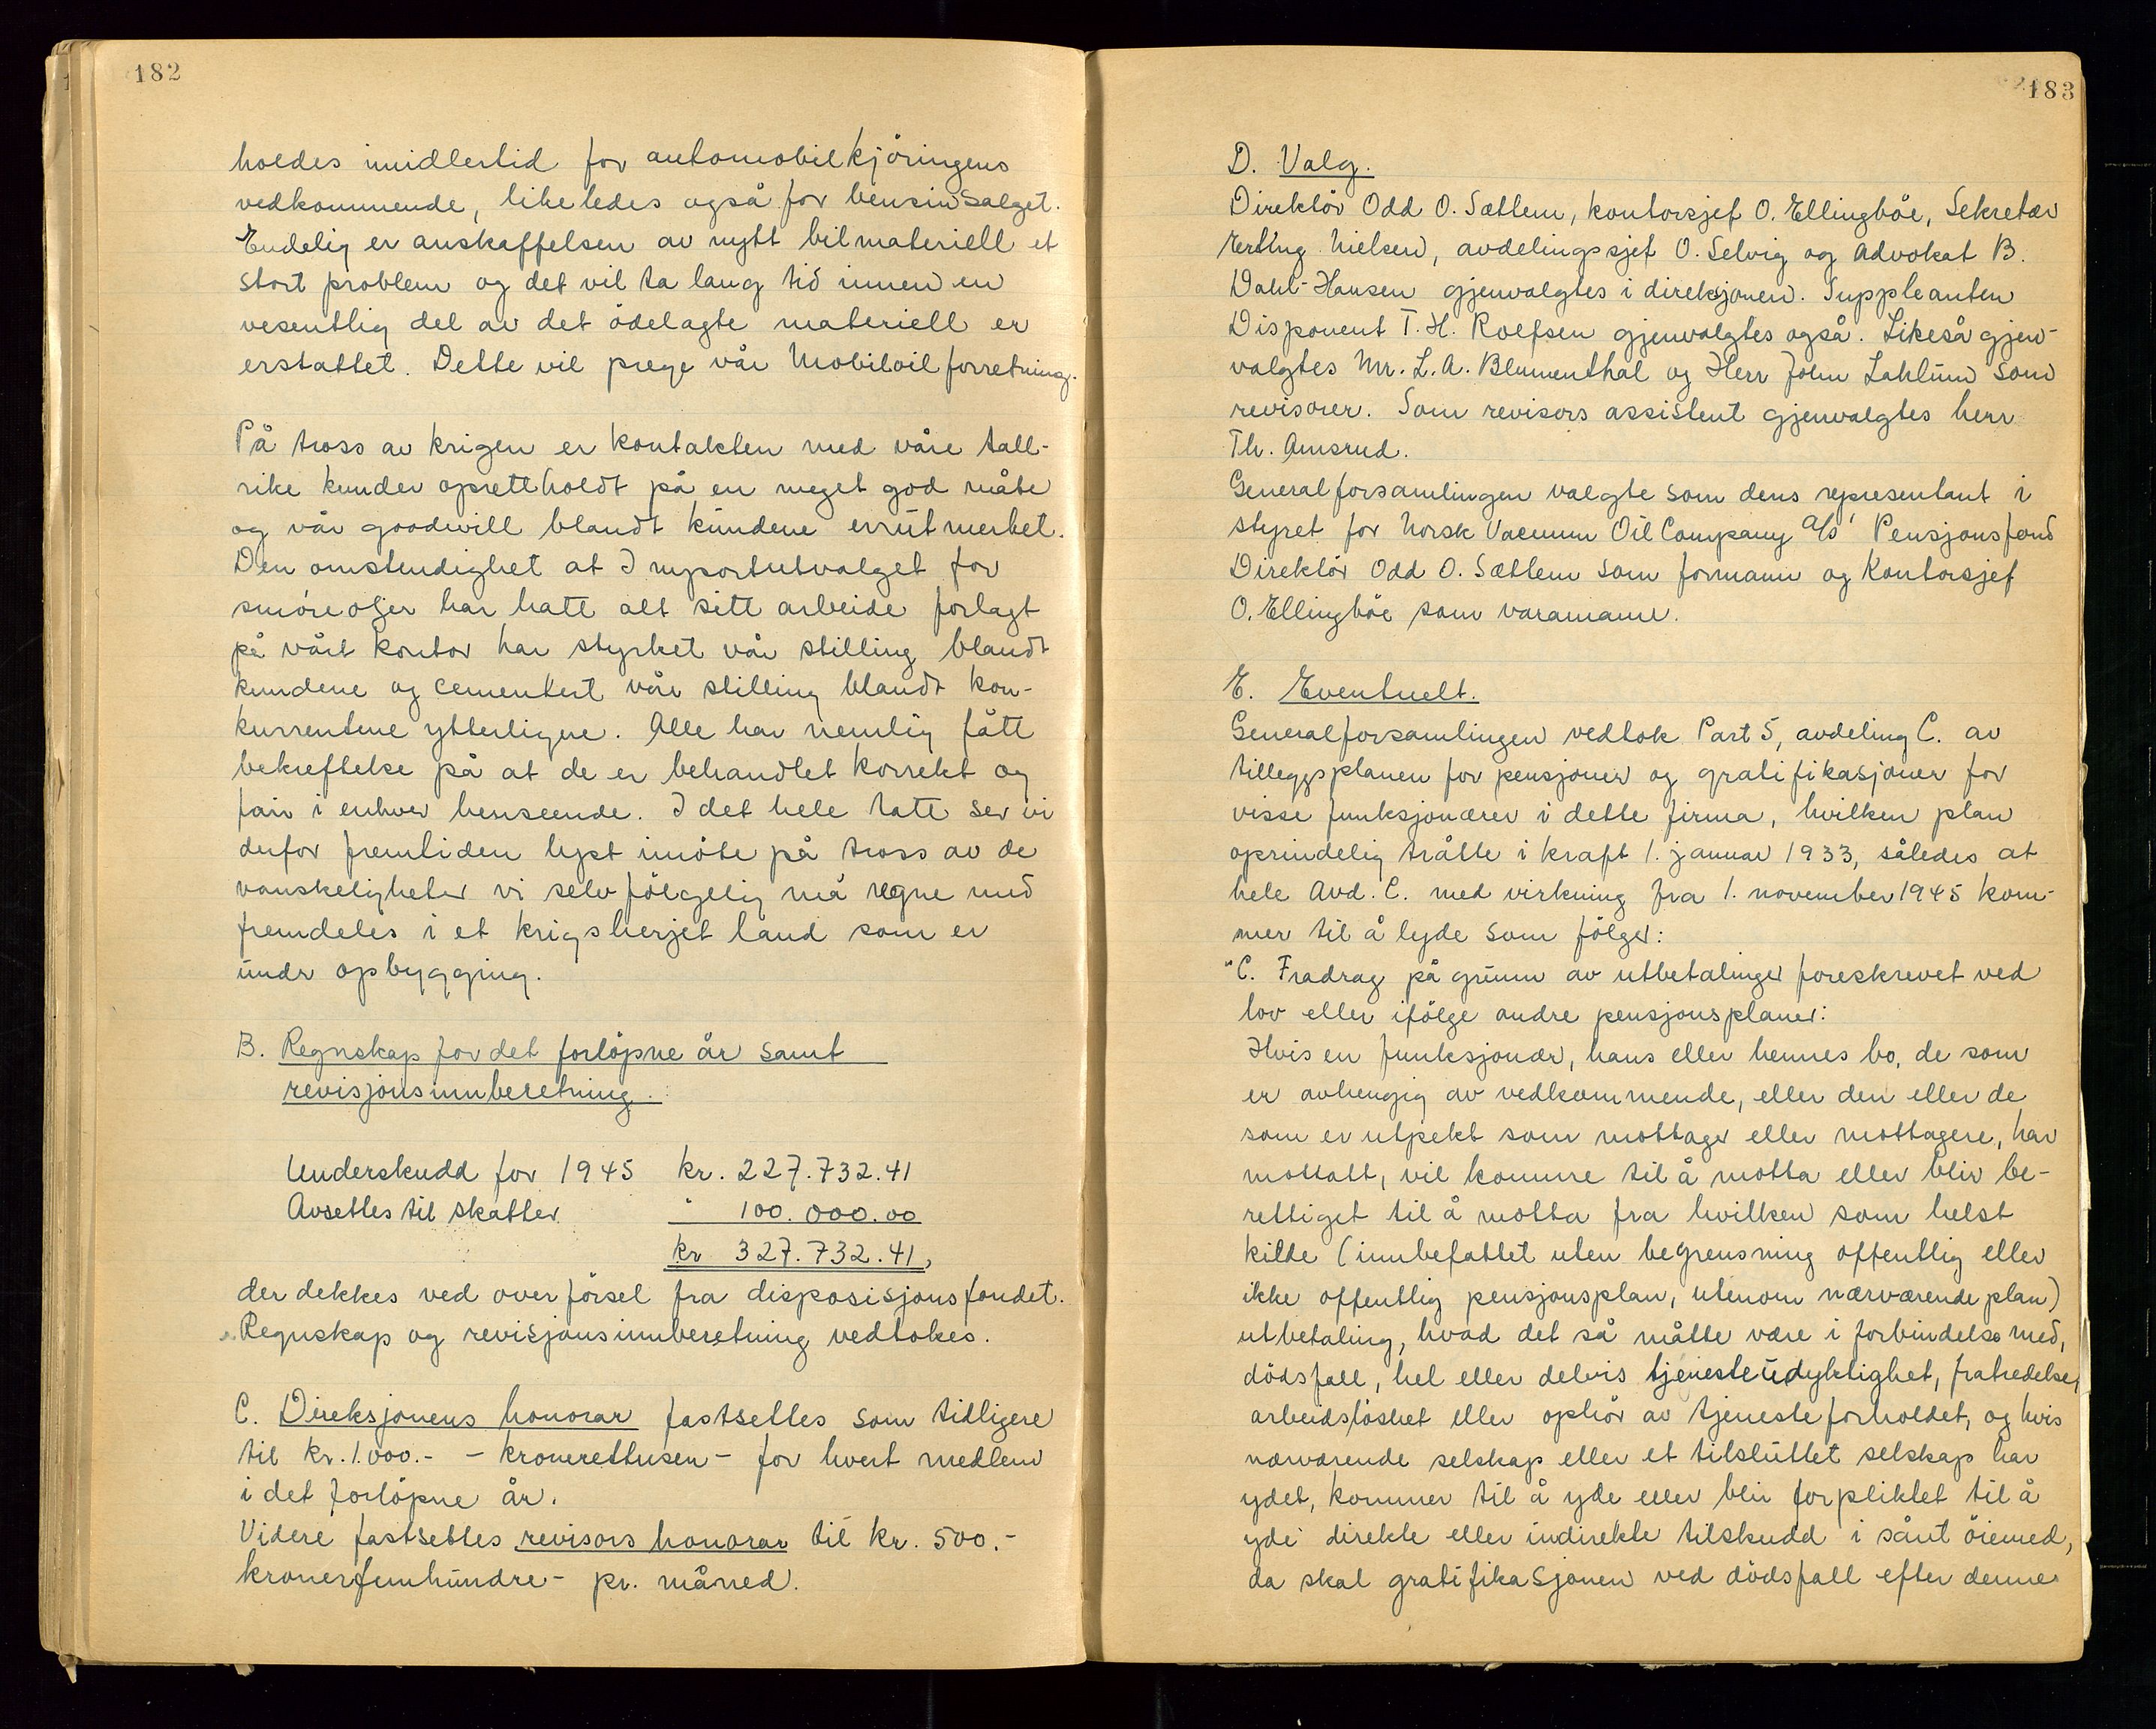 182
holdes imidlertid for automobilkjöringens
vedkommende, likeledes også for bensinsalget.
Endelig er anskaffelsen av nytt bilmateriell et
stort problem og det vil ta lang tid innen en
vesentlig del av det ödelagte materiell er
erstattet. Dette vil prege vår Mobiloil forretning.
På tross av krigen er kontakten med våre tall-
rike kunder oprettholdt på en meget god måte
og vår goodwill blandt kundene er utmerket.
Den omstendighet at Importutvalget for
smöreoljer har hatt alt sitt arbeide forlagt
på vårt kontor har styrket vår stilling blandt
kundene og cementert vår stilling blandt kon-
kurrentene ytterligere. Alle har nemlig fått
bekreftelse på at de er behandlet korrekt og
fair i enhver henseende. I det hele tatt ser vi
derfor fremtiden lyst imöte på tross av de
vanskeligheter vi selvfölgelig må regne med
fremdeles i et krigsherjet land som er
undr opbygging.
B. Regnskap for det forlöpne år samt
revisjonsinnberetning.
Underskudd for 1945 kr. 227.732.41
Avsettes til skatter " 100.000.00
kr 327.732.41,
der dekkes ved overförsel fra disposisjonsfondet.
Regnskap og revisjonsinnberetning vedtokes.
C. Direksjonens honorar fastsettes som tidligere
til kr. 1.000.- - kronerettusen - for hvert medlem
i det forlöpne år.
Videre fastsettes revisors honorar til kr. 500.-
kronerfemhundre - pr. måned.
183
D. Valg.
Direktör Odd O. Sættem, kontorsjef O. Ellingböe, Sekretær
Erling Nielsen, avdelingssjef O. Selvig og Advokat B.
Dahl-Hansen gjenvalgtes i direksjonen. Suppleanten
Disponent T. H. Roefsen gjenvalgtes også. Likeså gjen-
valgtes Mr. L. A. Blumenthal og Herr John Lahlum som
revisorer. Som revisors assistent gjenvalgtes herr
Th. Amsrud.
Generalforsamlingen valgte som dens representant i
styret for Norsk Vacuum Oil Company A/S' Pensjonsfond
Direktör Odd O. Sættem som formann og Kontorsjef
O. Ellingböe som varamann.
E. Eventuelt.
Generalforsamlingen vedtok Part 5, avdeling C. av
tilleggsplanen for pensjoner og gratifikasjoner for
visse funksjonærer i dette firma, hvilken plan
oprindelig trådte i kraft 1. januar 1933, således at
hele Avd. C. med virkning fra 1. november 1945 kom-
mer til å lyde som fölger:
"C. Fradrag på grunn av utbetalinger foreskrevet ved
lov eller ifölge andre pensjonsplaner:
Hvis en funksjonær, hans eller hennes bo, de som
er avhengig av vedkommende, eller den eller de
som er utpekt som mottager eller mottagere, har
mottatt, vil komme til å motta eller blir be-
rettiget til å motta fra hvilken som helst
kilde (innbefattet uten begrensning offentlig eller
ikke offentlig pensjonsplan, utenom nærværende plan)
utbetaling, hvad det så måtte være i forbindelse med,
dödsfall, hel eller delvis tjenesteudyktighet, fratredelse,
arbeidslöshet eller ophör av tjenesteforholdet, og hvis
nærværende selskap eller et tilsluttet selskap har
ydet, kommer til å yde eller blir forpliktet til å
yde direkte eller indirekte tilskudd i sånt öiemed,
da skal gratifikasjonen ved dödsfall efter denne